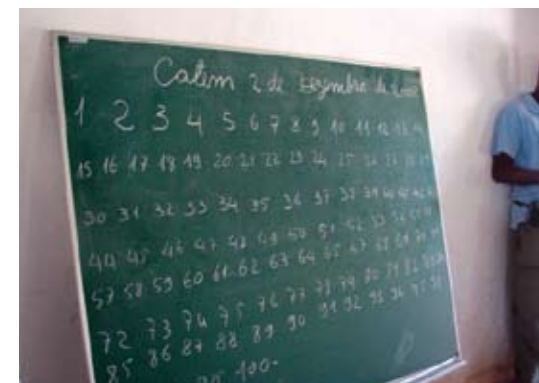 Catim 2 de Dezembro de 2008
1 2 3 4 5 6 7 8 9 10 11 12 13 14
15 16 17 18 19 20 21 22 23 24 25 26 27 28 29
30 31 32 33 34 35 36 37 38 39 40 41 42 43
44 45 46 47 48 49 50 51 52 53 54 55 56
57 58 59 60 61 62 63 64 65 67 68 69 70 71
72 73 74 75 76 77 78 79 80 81 82 83 84
85 86 87 88 89 90 91 92 93 94 95 96
99 100